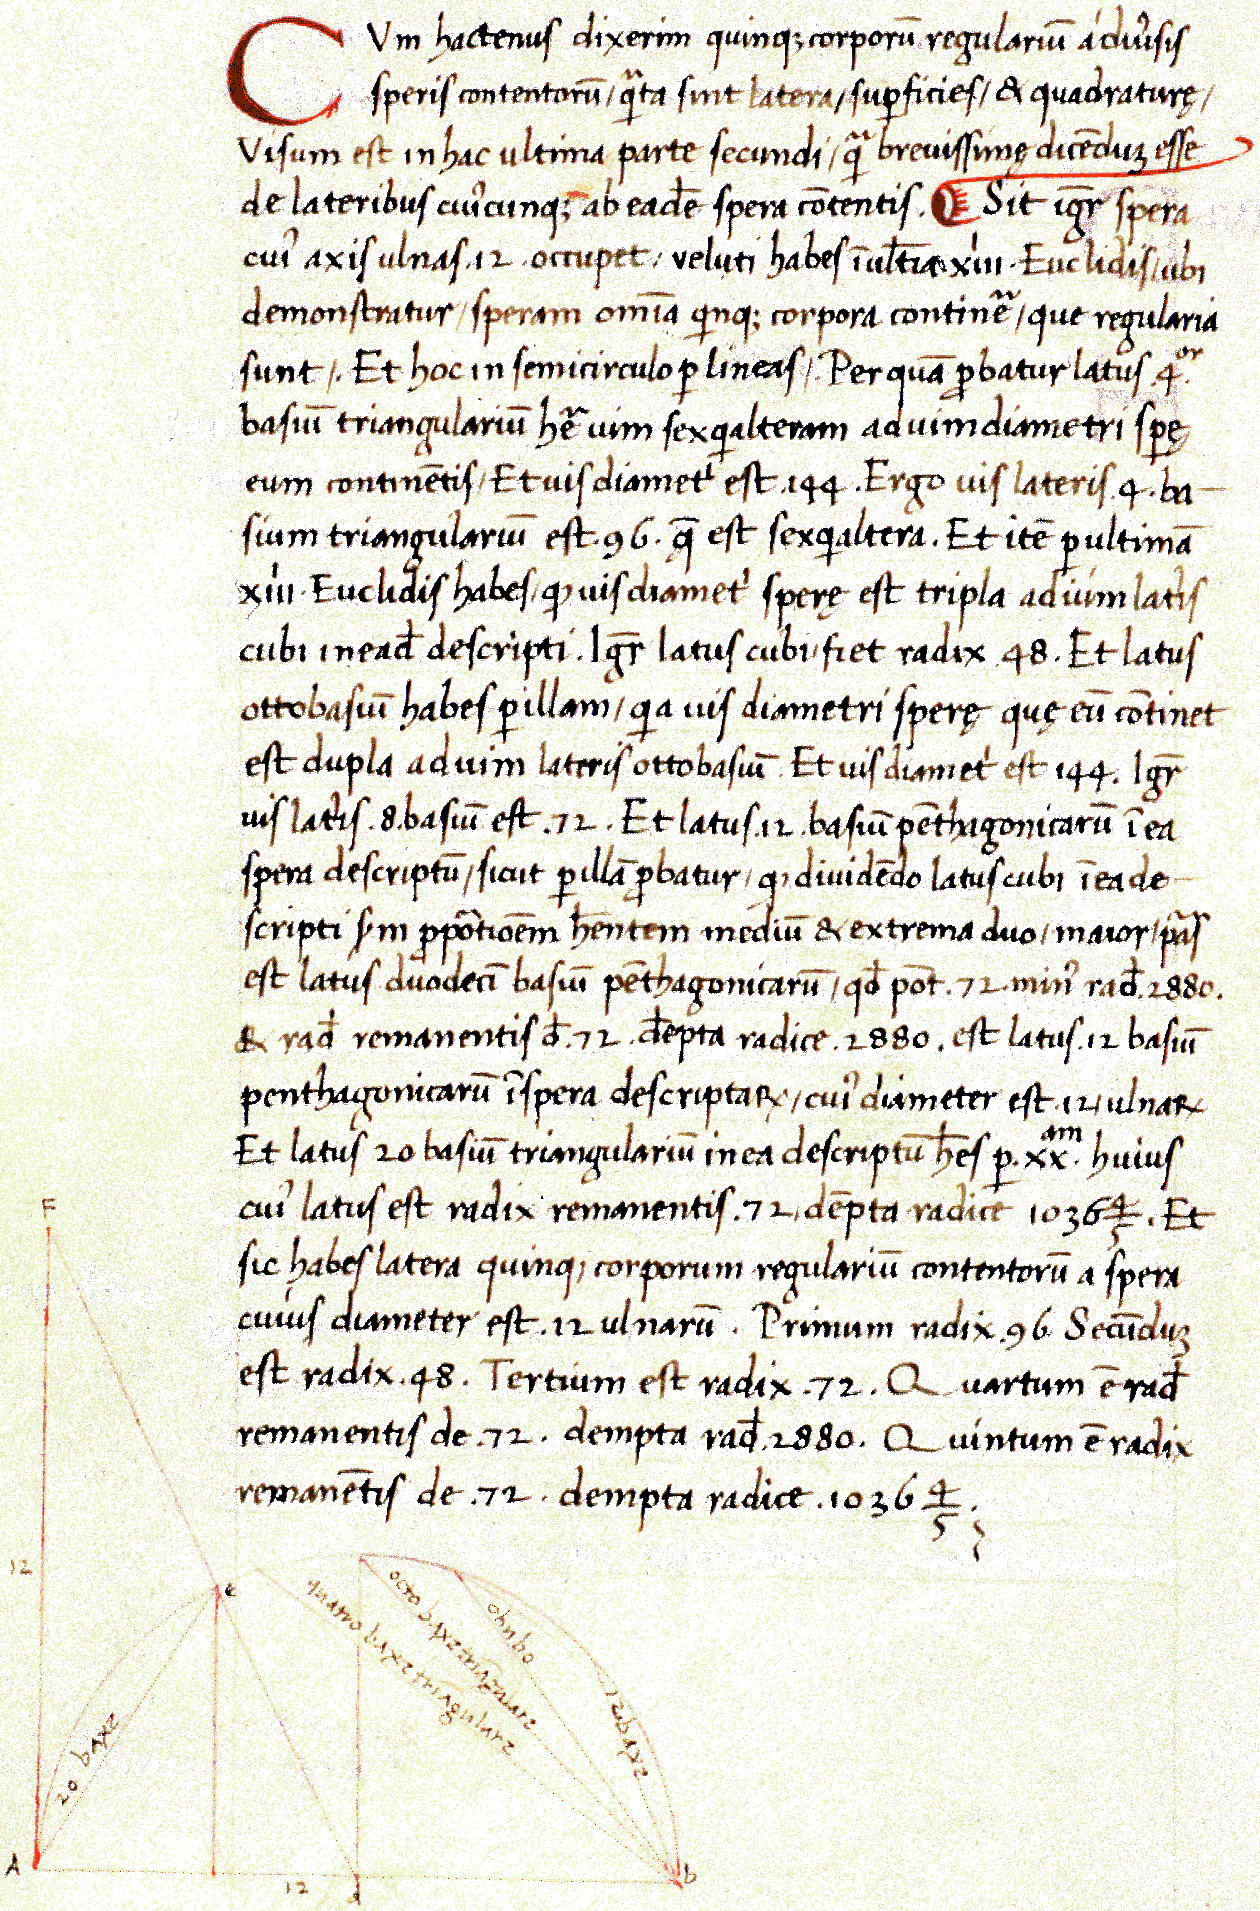 CVm hactenus dixerim quinq; corporū regulariū a diu'sis
speris contentorū / qͣta sint latera / suꝑficies / & quadraturę /
Visum est in hac ultima parte secundi / qͣ breuissimę dicēduʒ esse
de lateribus cui'cunq; ab eadē spera cōtentis. Sit igr̄ spera
cui' axis ulnas .12. occupet / veluti habes ī ultīa xiii. Euclidis / ubi
demonstratur / speram omīa qinq; corpora continēͣ / que regularia
sunt /. Et hoc in semicirculo ꝑ lineas /. Per quā ꝓbatur latus .4.ᵒʳ
basiū triangulariū hēͣ uim sexqialteram ad uim diametri spę
eum continētis / Et uis diamet' est .144. Ergo uis lateris .4. ba-
sium triangulariū est .96. q̄ est sexqialtera. Et itē ꝑ ultimā
xiii. Euclidis habes / ꝙ uis diamet' sperę est tripla ad uim lat'is
cubi in ead̄ descripti. Igr̄ latus cubi / fiet radix .48. Et latus
ottobasiū habes ꝑ illam / qi a uis diametri sperę quę eū cōtinet
est dupla ad uim lateris ottobasiū. Et uis diamet' est 144. Igr̄
uis lat'is .8. basiū est .72. Et latus .12. basiū pēthagonicarū ī ea
spera descriptū / sicut ꝑ illā ꝓbatur / ꝙ diuidēdo latus cubi ī ea de-
scripti s'm ꝓpōtioēm hēntem mediū & extrema duo / maior / ꝑs
est latus duodecī basiū pēthagonicarū / qd̄ pōt .72. min' rad̄. 2880.
& rad̄ remanentis d̄ .72. dēpta radice .2880. est latus .12 basiū
penthagonicarū ī spera descriptaꝝ / cui' diameter est .12. ulnaꝝ
Et latus 20 basiū triangulariū in ea descriptū hēs ꝑ .xx.ᵃᵐ huius
cui' latus est radix remanentis .72. dēpta radice 1036 4/5. Et
sic habes latera quinq; corporum regulariū contentorū a spera
cuius diameter est .12 ulnarū. Primum radix .96 Secūduʒ
est radix .48. Tertium est radix .72. Quartum ē rad̄
remanentis de .72. dempta rad̄ .2880. Quintum ē radix
remanētis de .72. dempta radice .1036 4/5.
F
12
e
quatro baxe triāgulare
octo baxe triāgulare
chubo
12 baxe
20 baxe
A
12
d
b